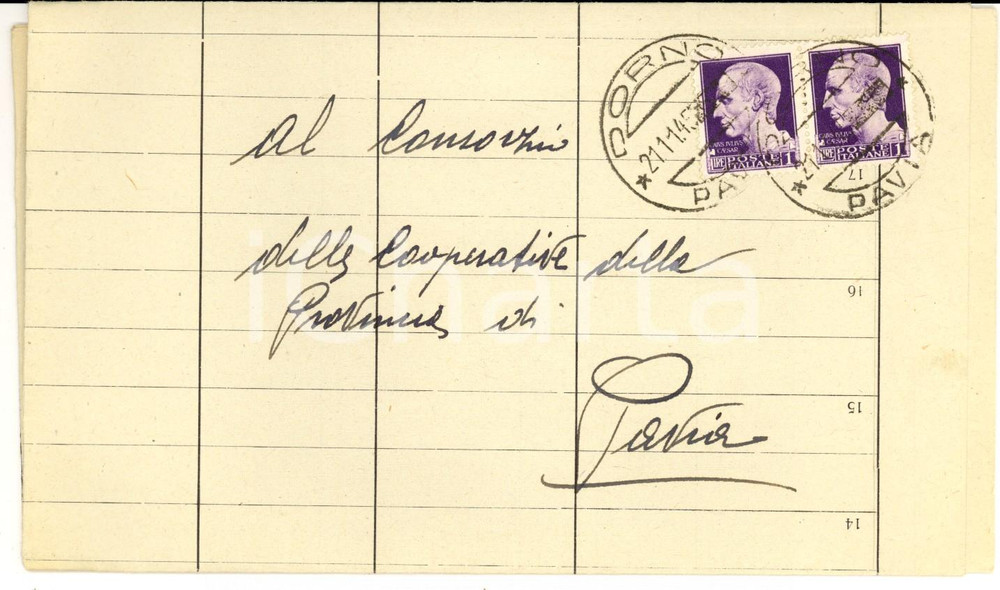 DORNO
21.11.45
PAVIA
CAIVS IVLIVS
CAESAR
LIRE POSTE ITALIANE 1
CAIVS IVLIVS
CAESAR
LIRE POSTE ITALIANE 1
PAVIA
17
Al Consorzio
delle Cooperative della
16
Provincia di
15
Pavia
14